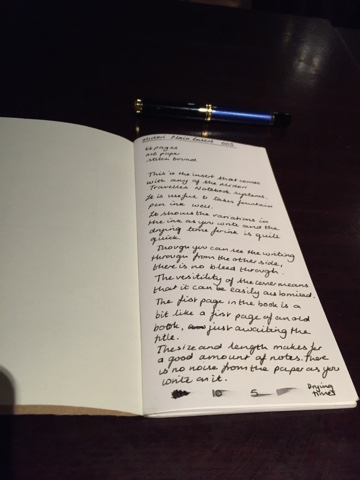 Midori Plain Insert 003
64 pages
MD paper
stitch bound
This is the insert that comes
with any of the Midori
Travellers Notebook systems.
It is useful & takes fountain
pen ink well.
It shows the variations in
the ink as you write and the
drying time for ink is quite
quick.
Though you can see the writing
through from the other side,
there is no bleed through.
The versitility of the cover means
that it can be easily customised.
The first page in the book is a
bit like a first page of an old
book, just awaiting the
title.
The size and length makes for
a good amount of notes. There
is no noise from the paper as you
write on it.
10 5 Drying
times